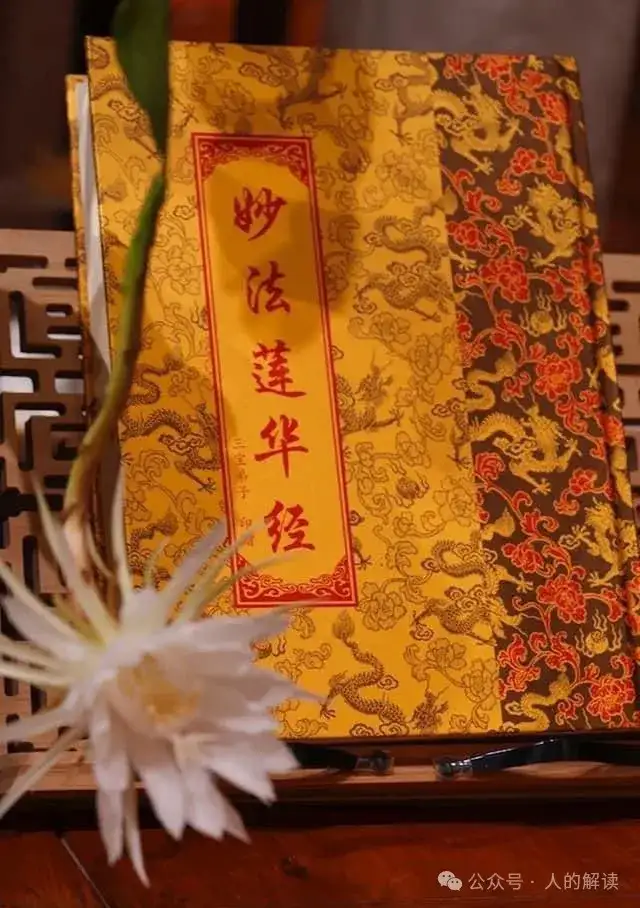 妙法莲华经
三宝弟子 印
公众号 · 人的解读